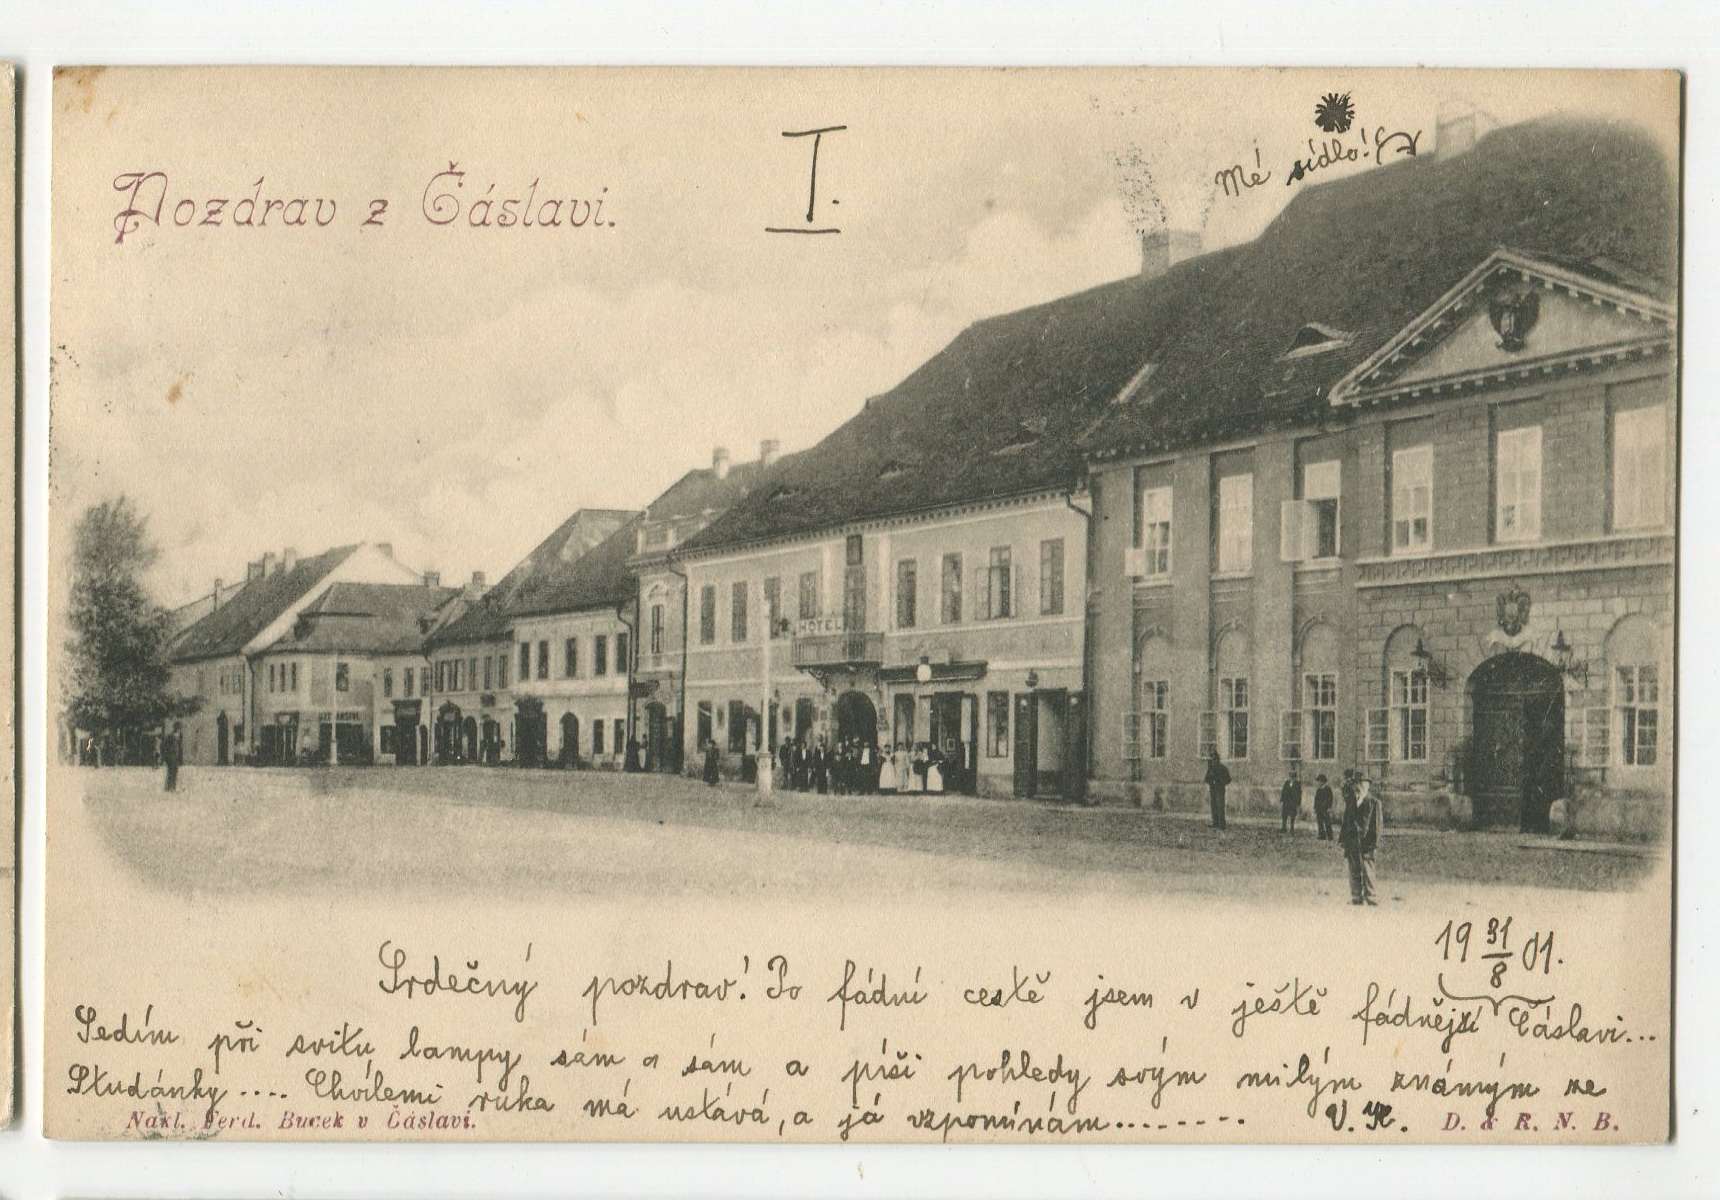 Pozdrav z Čáslavi.
I.
Mé sídlo!
HOTEL
19 31/8 01.
Srdečný pozdrav! Po fádní cestě jsem v ještě fádnější Čáslavi...
Sedím při svitu lampy sám a sám a píši pohledy svým milým známým ze
Studánky.... Chvílemi ruka má ustává, a já vzpomínám........
V. K.
Nakl. Ferd. Bucek v Čáslavi.
D. & R. N. B.